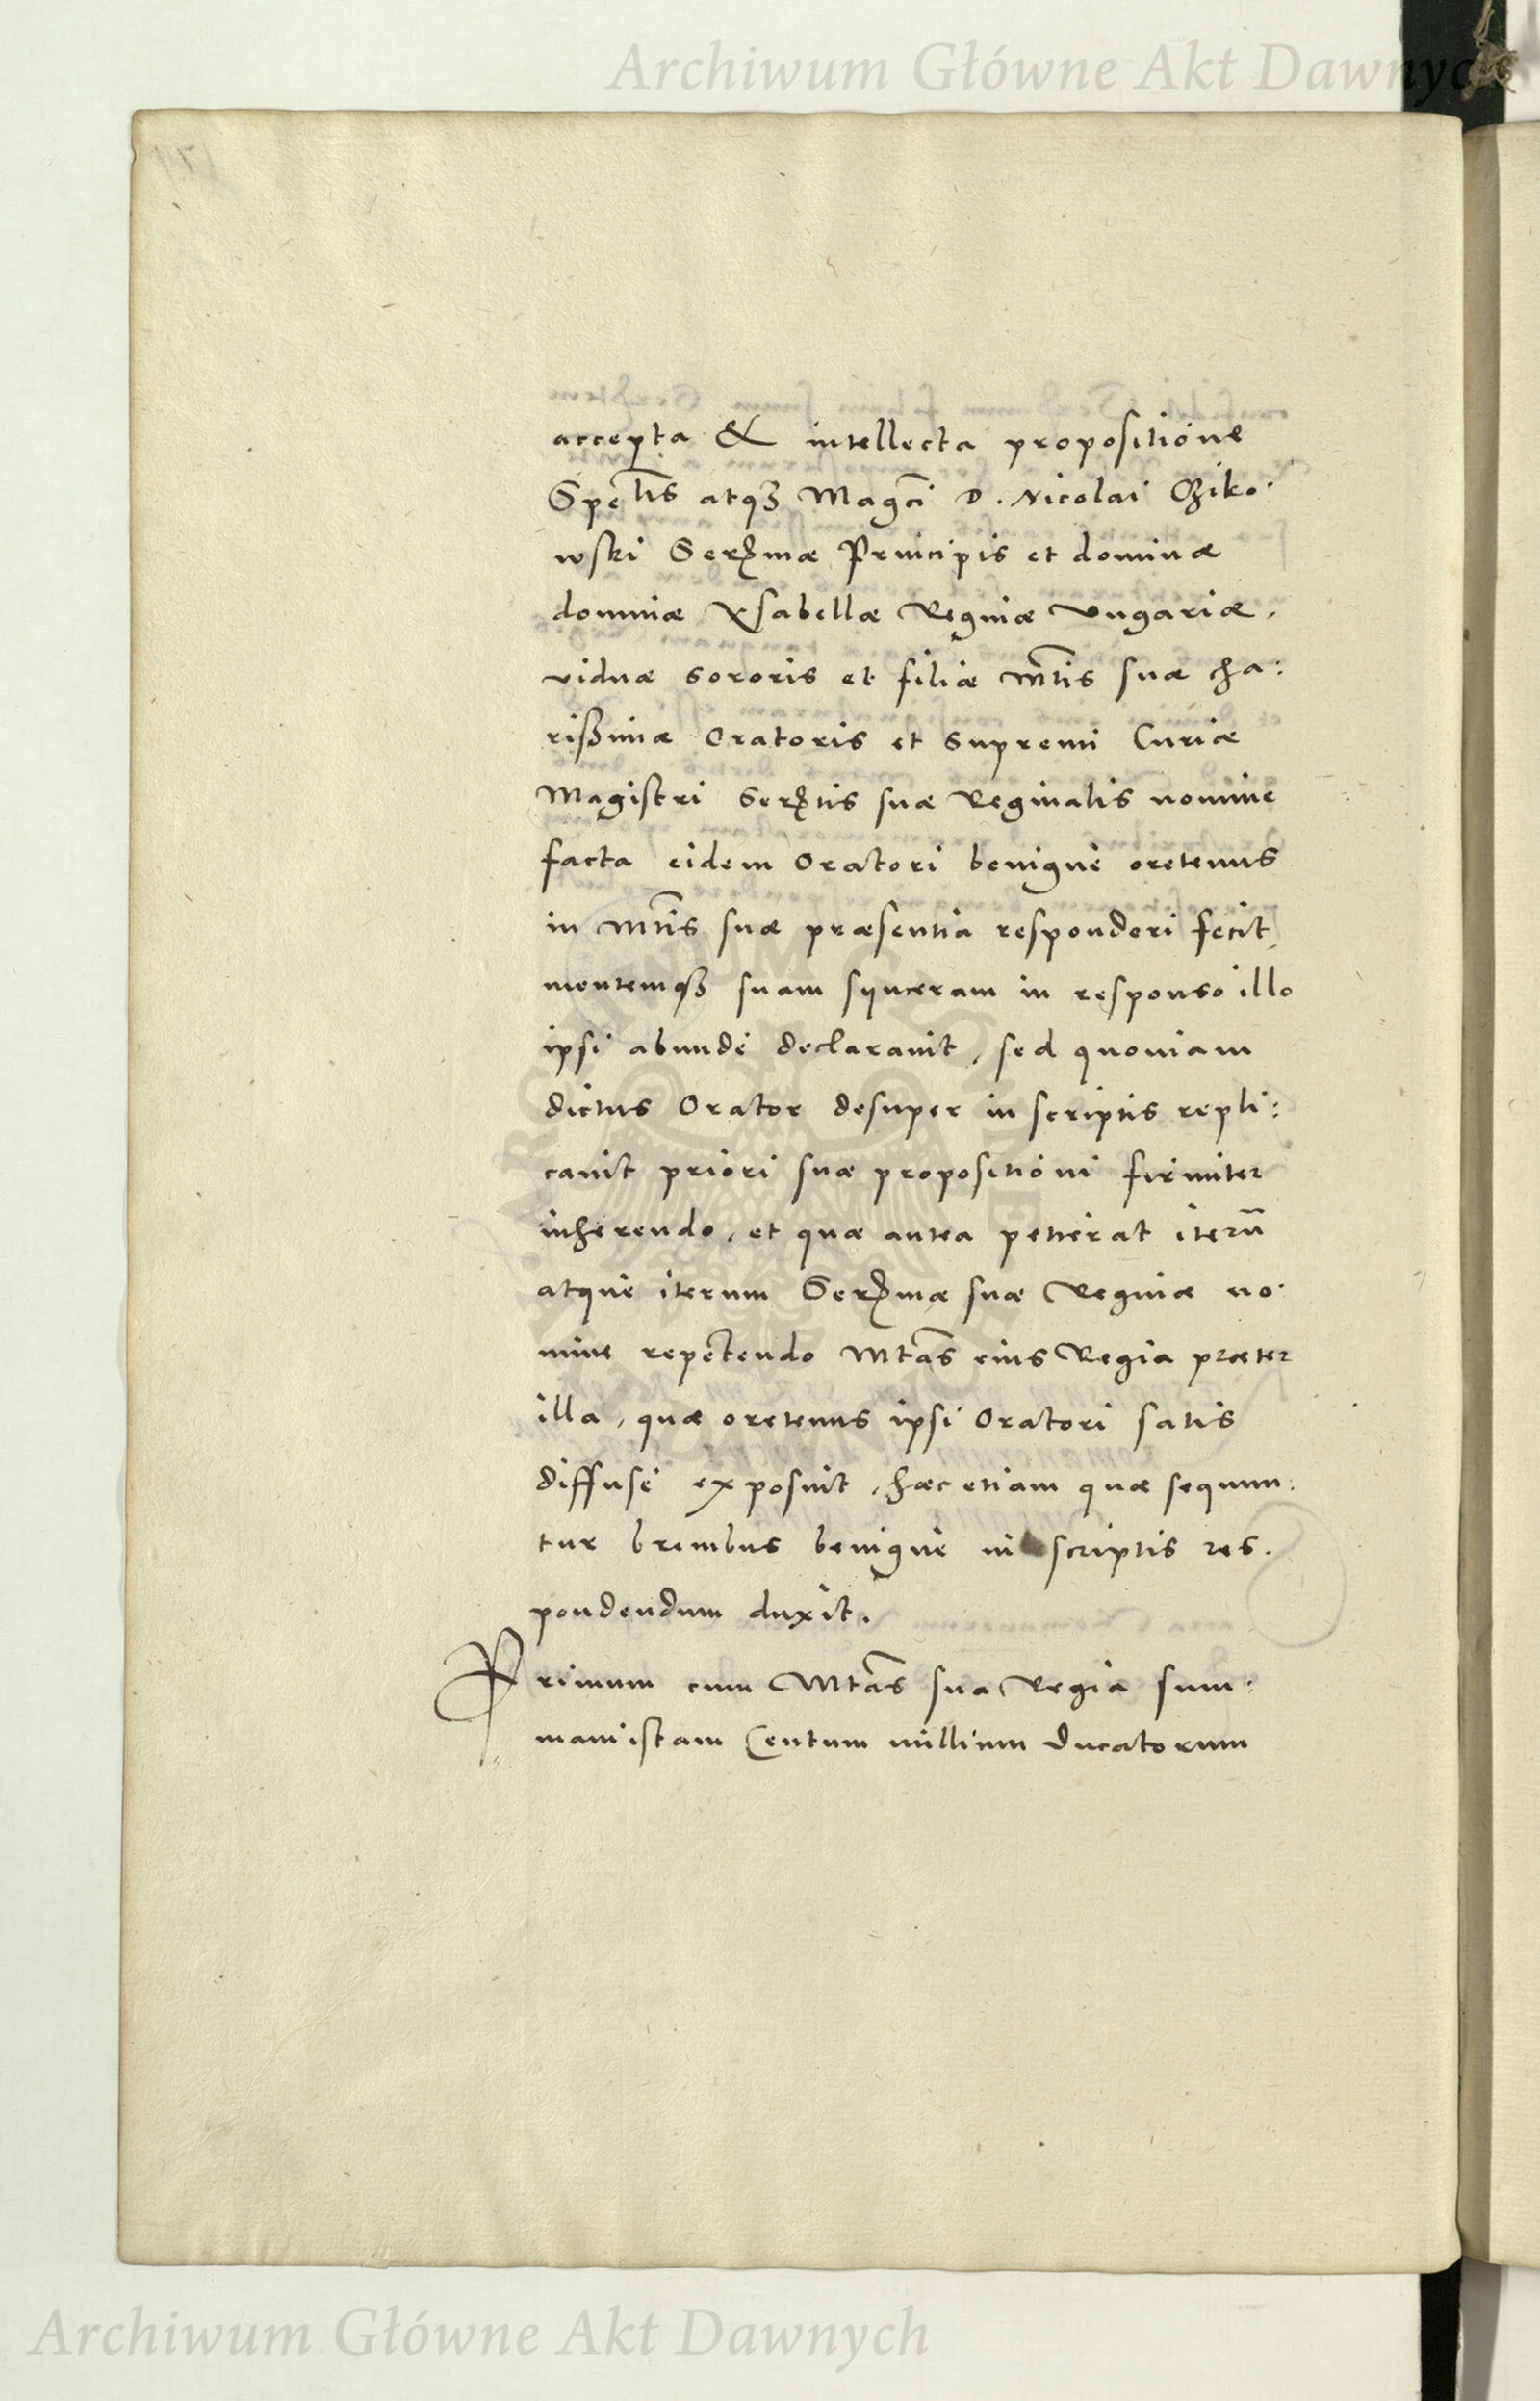 Archiwum Główne Akt Dawnych
accepta & intellecta propositione
Spe^lis atqꝫ Mag^ci D. Nicolai Cziko·
wski Serᷤmæ Principis et dominæ
dominæ Ysabellæ Reginæ Vngariæ,
viduæ sororis et filiæ Mtis suæ cha:
rißimæ Oratoris et Supremi Curiæ
Magistri Serᷤtis suæ Reginalis nomine
facta eidem Oratori benignè oretenus
in Mtis suæ præsentia responderi fecit,
mentemqꝫ suam synceram in responso illo
ipsi abundè declarauit, sed quoniam
dictus Orator desuper in scriptis repli:
cauit priori suæ propositioni firmiter
inherendo, et quæ antea petierat iterū
atque iterum Serᷤmæ suæ Reginæ no·
mine repetendo Mtas eius Regia præter
illa, quæ oretenus ipsi Oratori satis
diffusè exposuit, hæc etiam quæ sequun:
tur breuibus benignè in scriptis res.
pondendum duxit.
Primum cum Mtas sua Regia sum:
mam istam Centum millium Ducatorum
Archiwum Główne Akt Dawnych